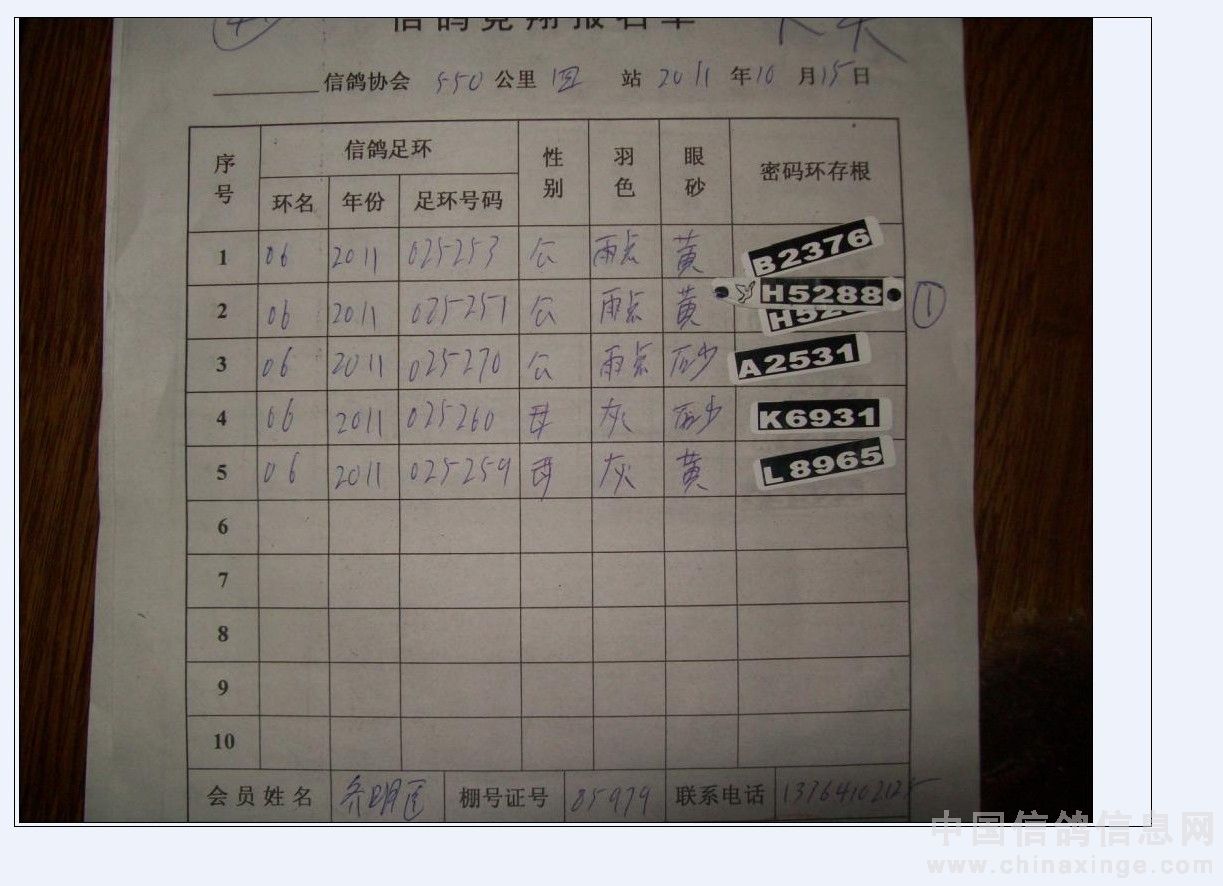 信鸽竞翔报名单
信鸽协会 550 公里 四 站 2011 年 10 月 15 日
序号 信鸽足环 性别 羽色 眼砂 密码环存根
环名 年份 足环号码
1 06 2011 025253 公 雨点 黄 B2376
2 06 2011 025251 公 雨点 黄 H5288 ①
H528
3 06 2011 025270 公 雨点 砂 A2531
4 06 2011 025260 母 灰 砂 K6931
5 06 2011 025259 母 灰 黄 L8965
6
7
8
9
10
会员姓名 棚号证号 85979 联系电话
中国信鸽信息网
www.chinaxinge.com